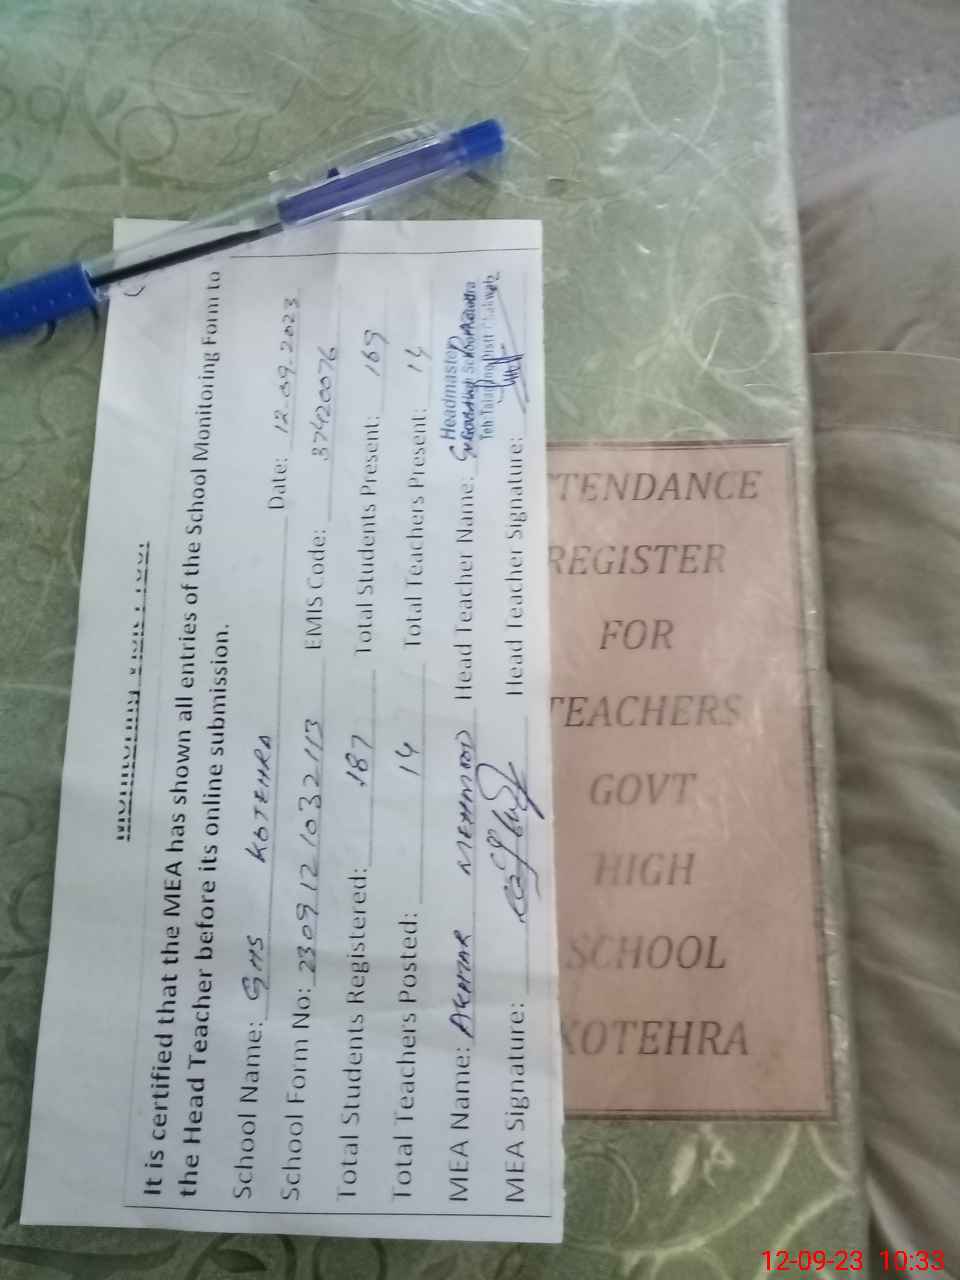 Monitoring Visit Proof
It is certified that the MEA has shown all entries of the School Monitoring Form to
the Head Teacher before its online submission.
School Name: GHS KOTEHRA Date: 12.09.2023
School Form No: 230912 1032113 EMIS Code: 37420076
Total Students Registered: 187 Total Students Present: 169
Total Teachers Posted: 14 Total Teachers Present: 14
MEA Name: AKHTAR MEHMOOD Head Teacher Name:
Headmaster
MEA Signature: Head Teacher Signature:
TTENDANCE
REGISTER
FOR
TEACHERS
GOVT
HIGH
SCHOOL
KOTEHRA
12-09-23 10:33